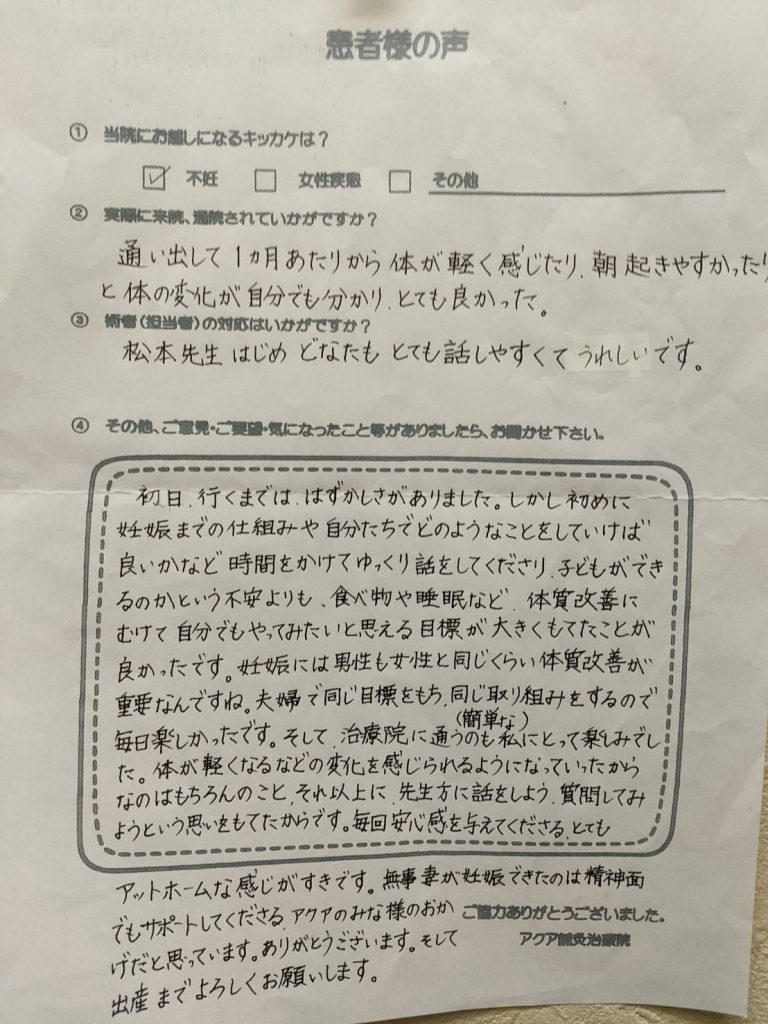 患者様の声
① 当院にお越しになるキッカケは？
☑ 不妊 □ 女性疾患 □ その他
② 実際に来院、通院されていかがですか？
通い出して1ヵ月あたりから体が軽く感じたり、朝起きやすかったり
と体の変化が自分でも分かり、とても良かった。
③ 術者（担当者）の対応はいかがですか？
松本先生はじめどなたもとても話しやすくてうれしいです。
④ その他、ご意見・ご要望・気になったこと等がありましたら、お聞かせ下さい。
初日、行くまでは、はずかしさがありました。しかし初めに
妊娠までの仕組みや自分たちでどのようなことをしていけば
良いかなど時間をかけてゆっくり話をしてくださり、子どもができ
るのかという不安よりも、食べ物や睡眠など、体質改善に
むけて自分でもやってみたいと思える目標が大きくもてたことが
良かったです。妊娠には男性も女性と同じくらい体質改善が
重要なんですね。夫婦で同じ目標をもち、同じ取り組みをするので
(簡単な)
毎日楽しかったです。そして、治療院に通うのも私にとって楽しみでし
た。体が軽くなるなどの変化を感じられるようになっていったから
なのはもちろんのこと、それ以上に、先生方に話をしよう、質問してみ
ようという思いをもてたからです。毎回安心感を与えてくださる、とても
アットホームな感じがすきです。無事妻が妊娠できたのは精神面
でもサポートしてくださる、アクアのみな様のおか
げだと思っています。ありがとうございます。そして
出産までよろしくお願いします。
ご協力ありがとうございました。
アクア鍼灸治療院